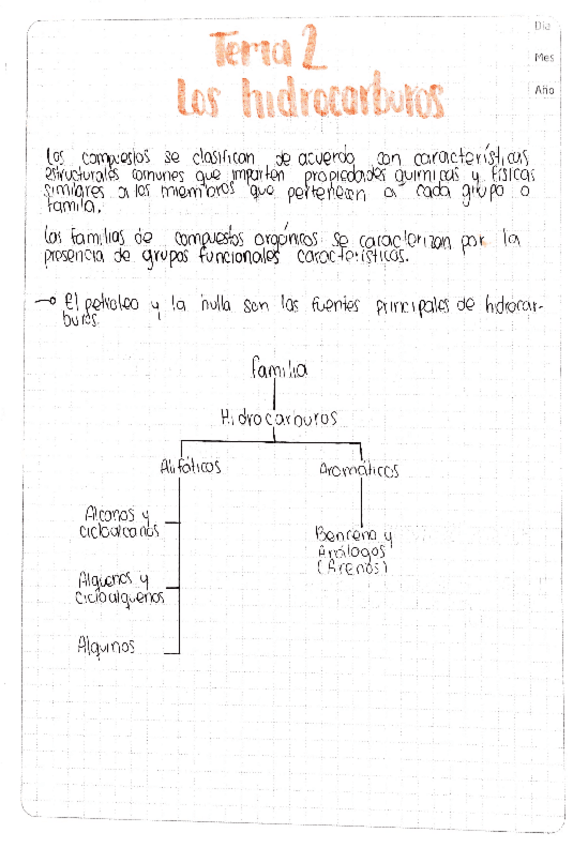 Día
Mes
Año
Tema 2
Los hidrocarburos
Los compuestos se clasifican de acuerdo con características
estructurales comunes que imparten propiedades quimicas y físicas
similares a los miembros que pertenecen a cada grupo o
famila.
Las familias de compuestos orgánicos se caracterizan por la
presencia de grupos funcionales característicos.
→ El petroleo y la hulla son las fuentes principales de hidrocar-
buros.
Familia
Hidrocarburos
Alifáticos
Aromáticos
Alcanos y
cicloalcanos
Benceno y
Análogos
(Arenos)
Alquenos y
Cicloalquenos
Alquinos